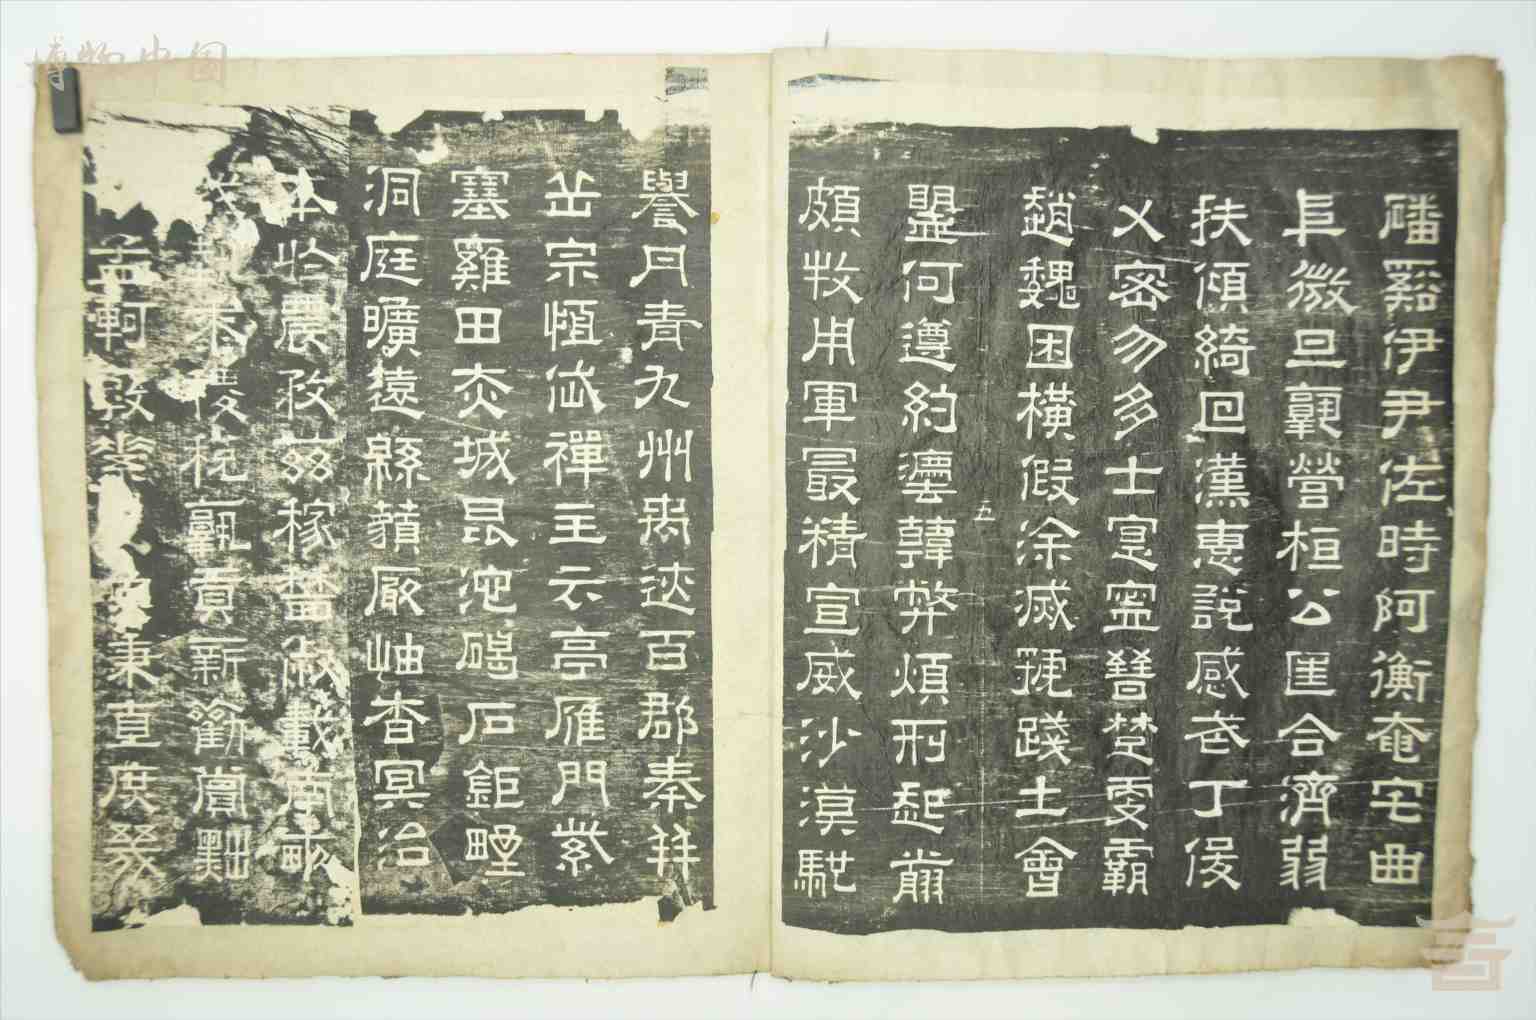 磻谿伊尹佐時阿衡奄宅曲
阜微旦孰營桓公匡合濟弱
扶傾綺回漢惠說感武丁俊
乂密勿多士寔寧晉楚更霸
趙魏困橫假途滅虢踐土會
盟何遵約法韓弊煩刑起翦
頗牧用軍最精宣威沙漠馳
五
譽丹青九州禹迹百郡秦并
岳宗恒岱禪主云亭雁門紫
塞雞田赤城昆池碣石鉅野
洞庭曠遠緜藐巖岫杳冥治
本於農務茲稼穡俶載南畝
我藝黍稷稅孰貢新勸賞黜
孟軻敦素史魚秉直庶幾
博物中国